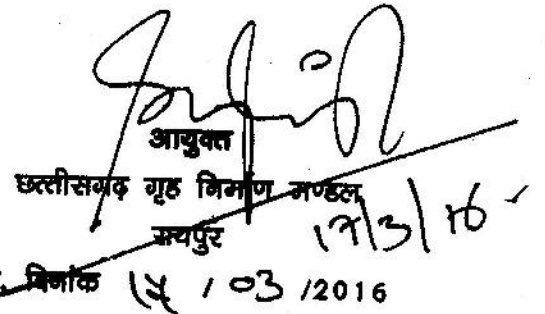 आयुक्त
छत्तीसगढ़ गृह निर्माण मण्डल
रायपुर
17/3/16
दिनांक / 03 /2016